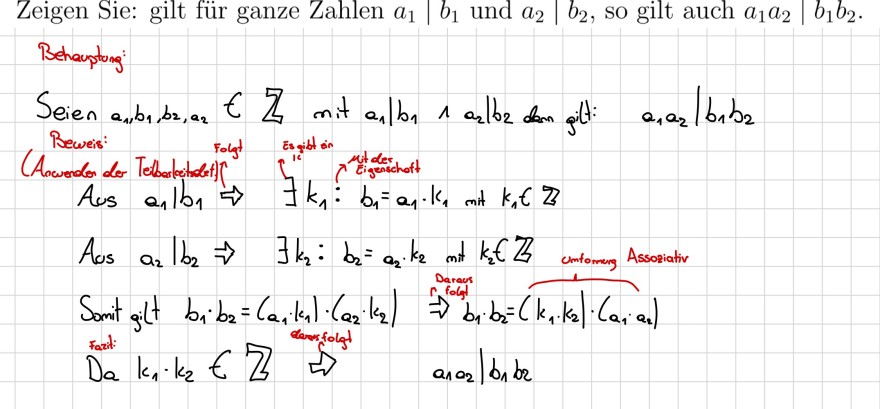 Zeigen Sie: gilt für ganze Zahlen a₁ | b₁ und a₂ | b₂, so gilt auch a₁a₂ | b₁b₂.
Behauptung:
Seien a₁,b₁,b₂,a₂ ∈ ℤ mit a₁|b₁ ∧ a₂|b₂ dann gilt: a₁a₂ | b₁b₂
Beweis:
(Anwenden der Teilbarkeitsdef) Folgt Es gibt ein k Mit der Eigenschaft
Aus a₁|b₁ ⇒ ∃ k₁: b₁ = a₁·k₁ mit k₁ ∈ ℤ
Aus a₂|b₂ ⇒ ∃ k₂: b₂ = a₂·k₂ mit k₂ ∈ ℤ
Daraus folgt Umformung Assoziativ
Somit gilt b₁·b₂ = (a₁·k₁)·(a₂·k₂) ⇒ b₁·b₂ = (k₁·k₂)·(a₁·a₂)
Fazit: daraus folgt
Da k₁·k₂ ∈ ℤ ⇒ a₁a₂ | b₁b₂